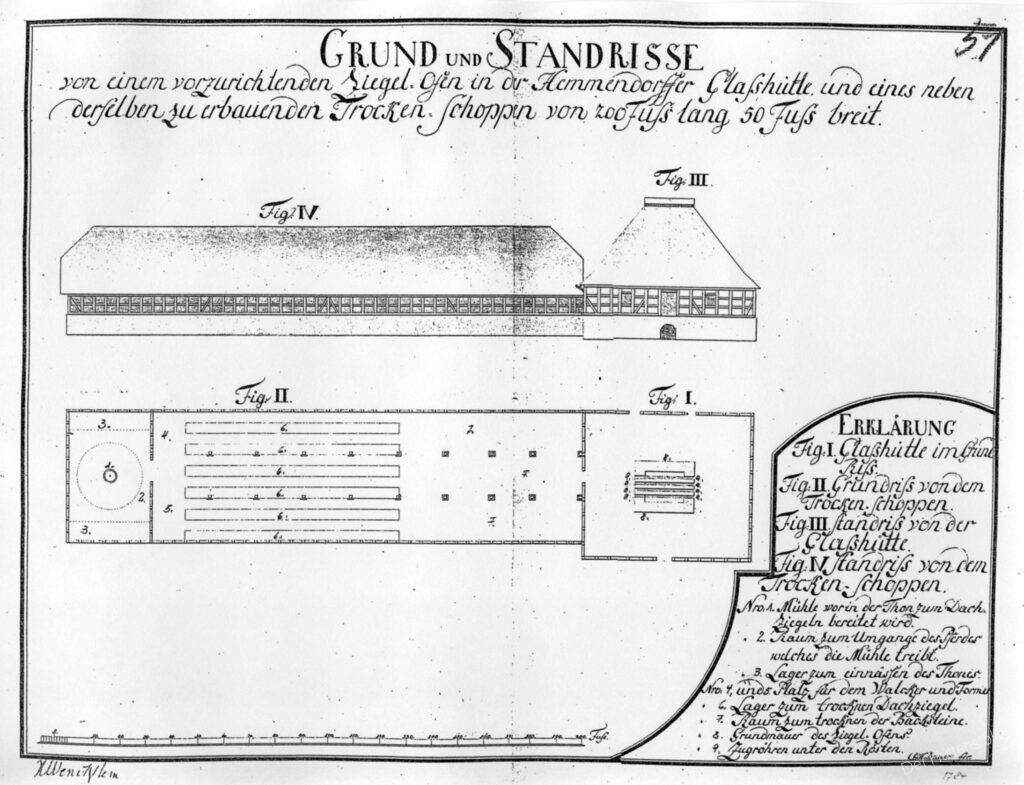 57
GRUND UND STANDRISSE
von einem vorzurichtenden Ziegel-Ofen in der Hemmendorffer Glaßhütte, und eines neben
derselben zu erbauenden Trocken-schoppen von 200 Fuß lang 50 Fuß breit.
Fig. III.
Fig. IV.
Fig. II.
Fig. I.
3.
4.
6.
7.
6.
1.
6.
7.
2.
6.
5.
6.
7.
3.
6.
8.
9.
ERKLÄRUNG
Fig. I. Glaßhütte im Grund
Riss.
Fig. II Grundriß von dem
Trocken-schoppen.
Fig. III standriß von der
Glaßhütte.
Fig. IV standriß von dem
Trocken-schoppen.
Nro. 1. Mühle vorin der Thon zum Dach-
Ziegeln bereitet wird.
2. Raum zum Umgange des Pferdes
welches die Mühle treibt.
3. Lager zum einnässen des Thones.
Nro. 4. und 5 Platz für dem Walcker und Former
6. Lager zum trocknen Dachziegel.
7. Raum zum trocknen der Backsteine.
8. Grundmauer des Ziegel-Ofens
9. Zugröhren unter den Rosten.
Fuss.
1784